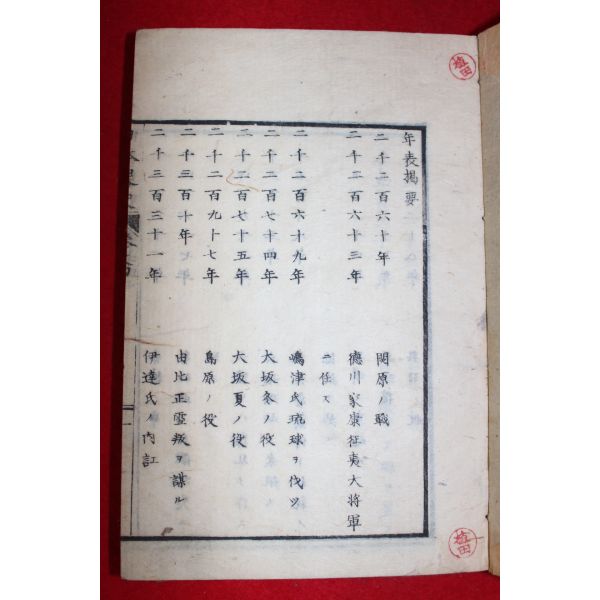 年表掲要
二千二百六十年
関原ノ戦
二千二百六十三年
徳川家康征夷大将軍
ニ任ス
二千二百六十九年
嶋津氏琉球ヲ伐ツ
二千二百七十四年
大坂冬ノ役
二千二百七十五年
大坂夏ノ役
二千二百九十七年
島原ノ役
二千三百十年
由比正雪叛ヲ謀ル
二千三百三十一年
伊達氏ノ内訌
植田
植田